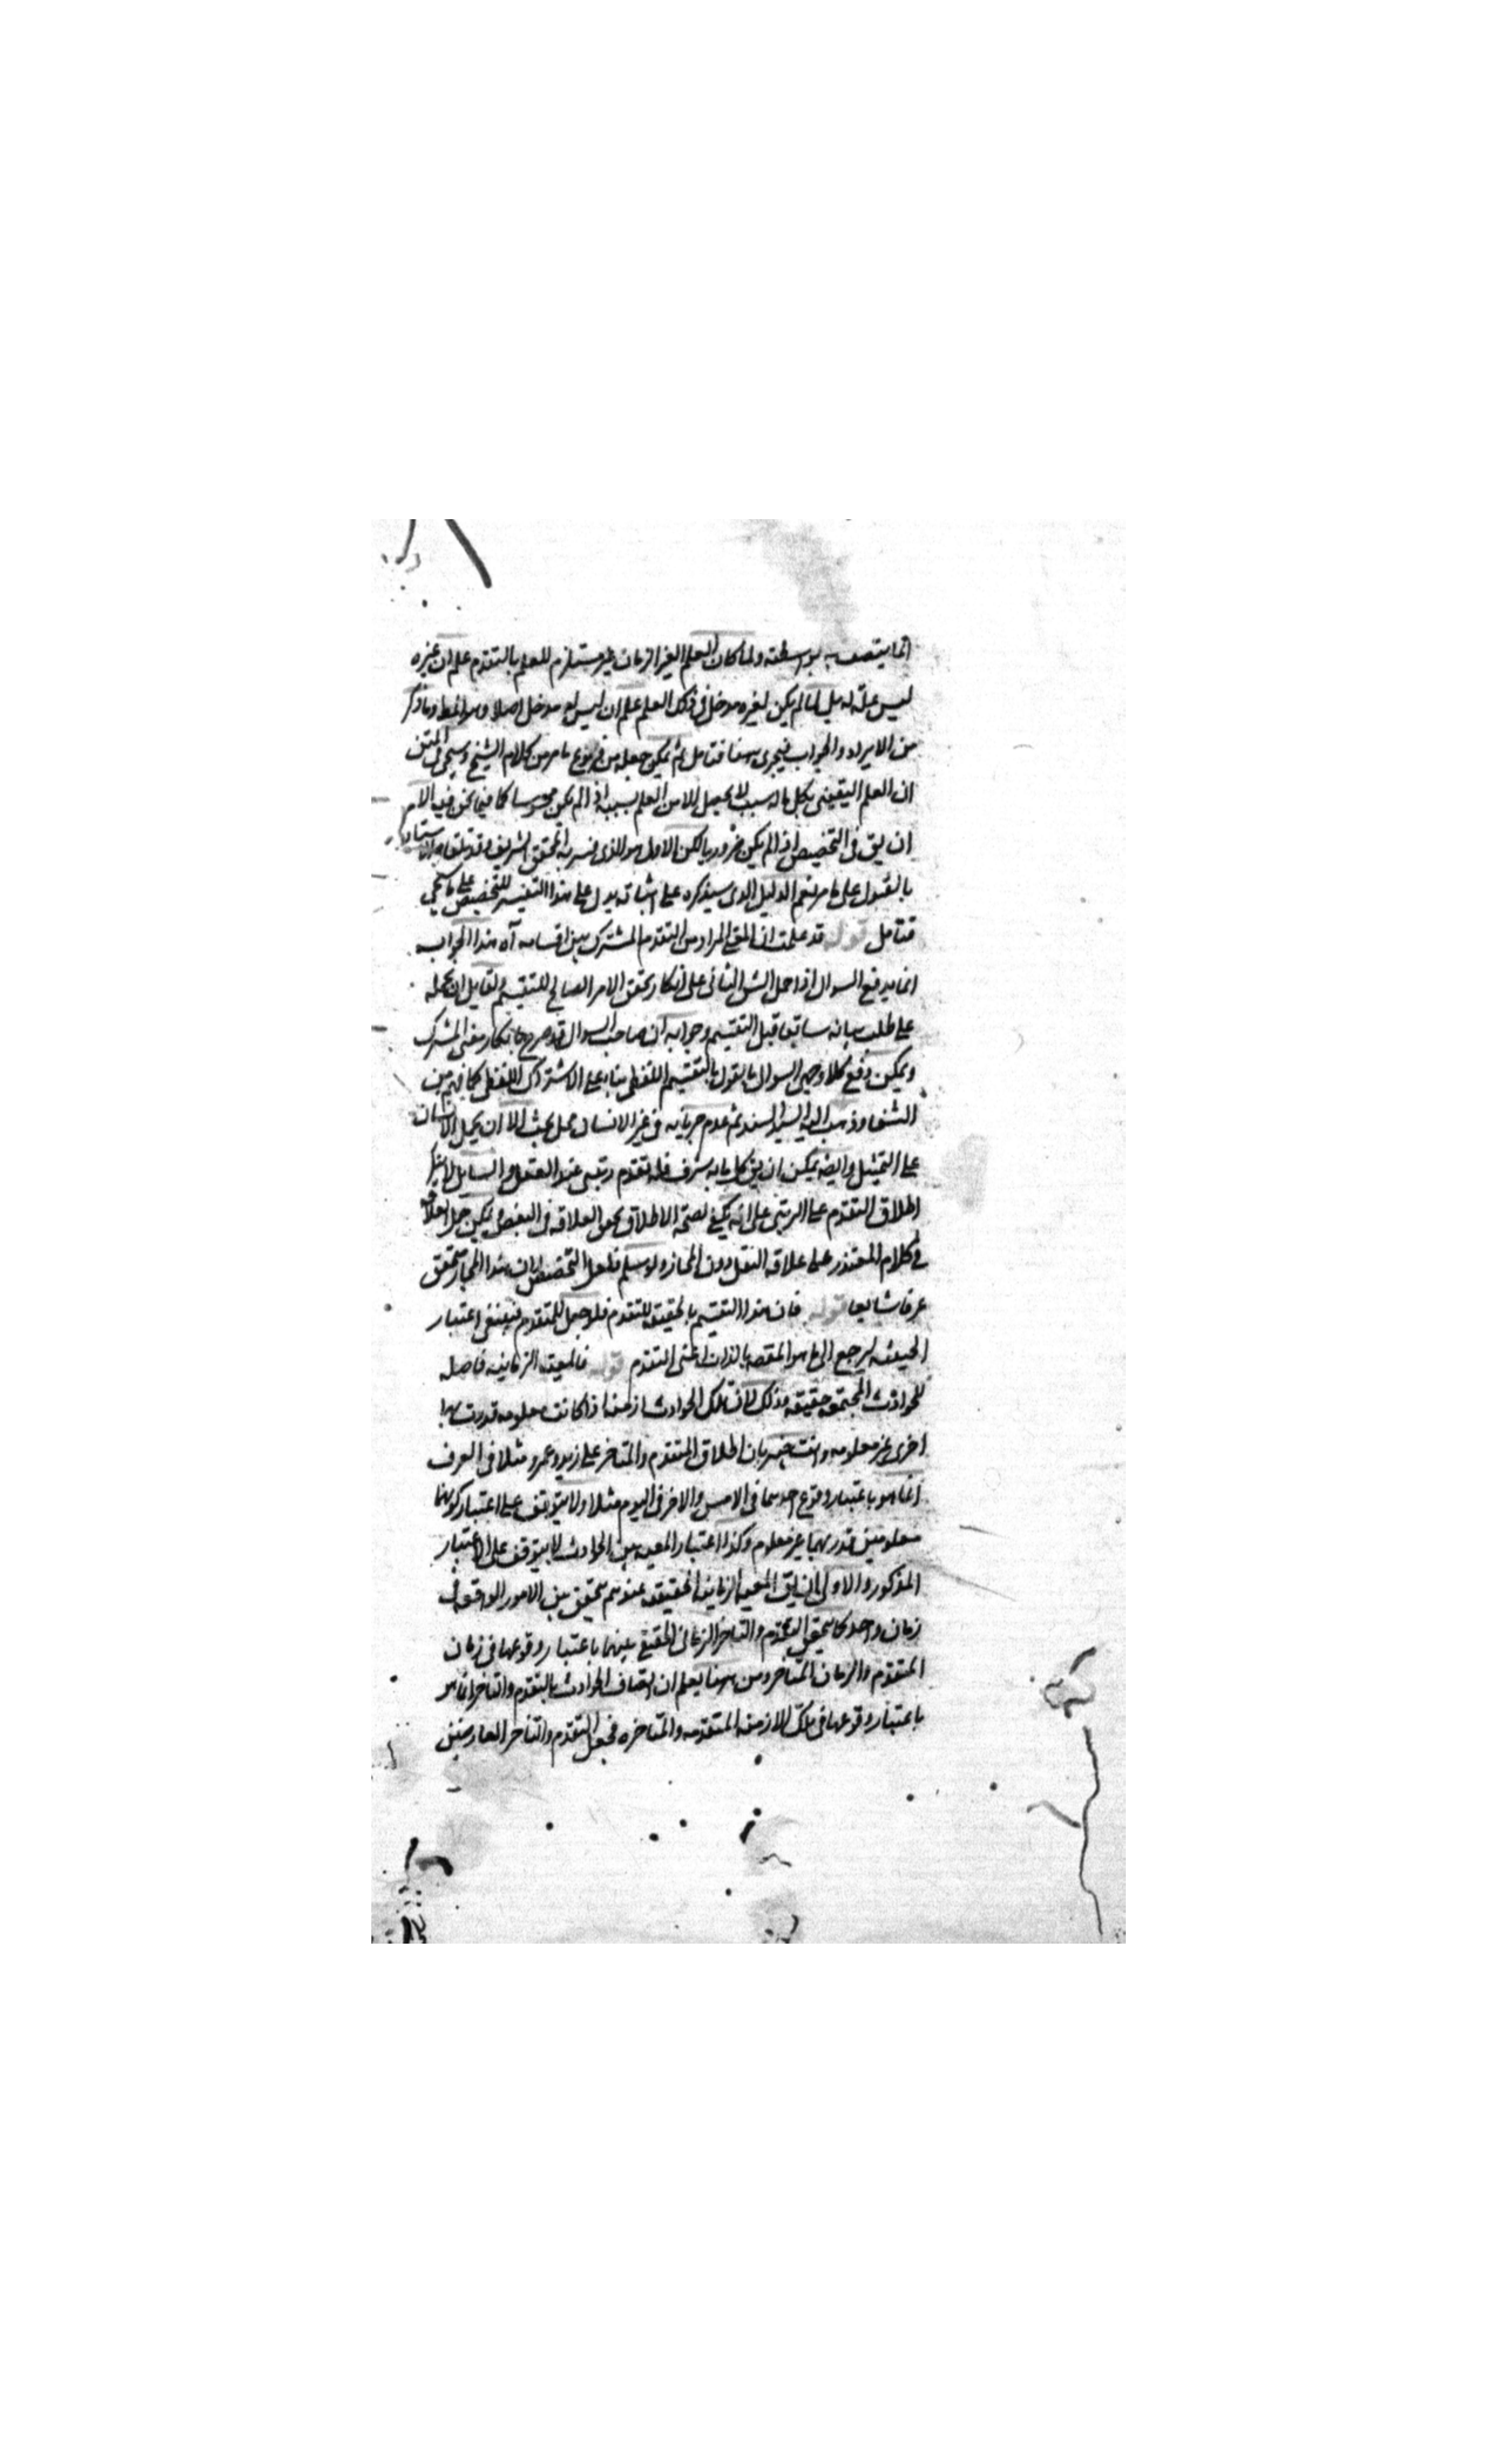 انما يتصف به بواسطته ولما كان العلم الغير الزمان غير مستلزم للعلم بالتقدم علم ان غيره
ليس علة له بل لما لم يكن لغيره مدخل في ذلك العلم علم ان ليس له مدخل اصلا وهو المط وما ذكر
من الايراد والجواب فيجرى ههنا فتامل ثم يمكن جعله من فروع ما مر من كلام الشيخ وسيجى فى المتن
ان العلم اليقينى بكل ماله سبب لا يحصل الا من العلم بسببه اذا لم يكن محسوسا كما فيما نحن فيه الا
ان يق فى التخصيص اذا لم يكن ضروريا لكن الاول هو الذى فسر به المحقق الشريف وقد تلقاه الاستاد
بالقبول على ما مر نعم الدليل الذى سيذكره على اثباته يدل على هذا التفسير للتخصيص على ما سيجى
فتامل قوله قد علمت ان المعنى المراد من التقدم المشترك بين اقسامه آه هذا الجواب
انما يدفع السوال اذا حمل الشق الثانى على انكار تحقق الامر الصالح للتقسيم ولقايل ان يحمله
على طلب بيانه سابقا قبل التقسيم وجوابه ان صاحب السوال قد صرح بانكار معنى المشترك
ويمكن دفع كلا وجهى السوال بالقول بالتقسيم اللفظى بناء على الاشتراك اللفظى كما فهم من
الشفا وذهب اليه السيد السند ثم عدم جريانه فى غير الانسان محل بحث الا ان يحمل الانسان
على التمثيل وايضا يمكن ان يق كل ما به شرف فله تقدم رتبى عند العقل والسايل لا ينكر
اطلاق التقدم على الرتبى على انه يكفى لصحة الاطلاق تحقق العلاقه فى البعض ويمكن حمل العلاقه
فى كلام المعتذر على علاقه النقل دون المجاز ولو سلم فلعل التخصيص لان هذا المجاز تحقق
عرفا شايعا قوله فان هذا التقسيم بالحقيقه للتقدم فلو جعل للمتقدم فينبغى اعتبار
الحيثيه ليرجع الى ما هو المقصد بالذات اعنى التقدم قوله فالمعيه الزمانيه حاصله
للحوادث المجتمعه حقيقه وذلك لان تلك الحوادث ازمنه اذا كانت معلومه قدرت بها
اخرى غير معلومه وانت خبير بان اطلاق المتقدم والمتاخر على زيد وعمرو مثلا فى العرف
انما هو باعتبار وقوع احدهما فى الامس والاخر فى اليوم مثلا ولا يتوقف على اعتبار كونهما
معلومين قدر بهما غير معلوم وكذا اعتبار المعيه بين الحوادث لا يتوقف على الاعتبار
المذكور والاولى ان يق المعيه الزمانيه الحقيقه عندهم تتحقق بين الامور الواقعه فى
زمان واحد كما تحقق التقدم والتاخر الزمانى الحقيقى بينهما باعتبار وقوعها فى زمان
المتقدم والزمان المتاخر ومن ههنا يعلم ان اتصاف الحوادث بالتقدم والتاخر انما هو
باعتبار وقوعها فى تلك الازمنه المتقدمه والمتاخره فجعل التقدم والتاخر العارضين